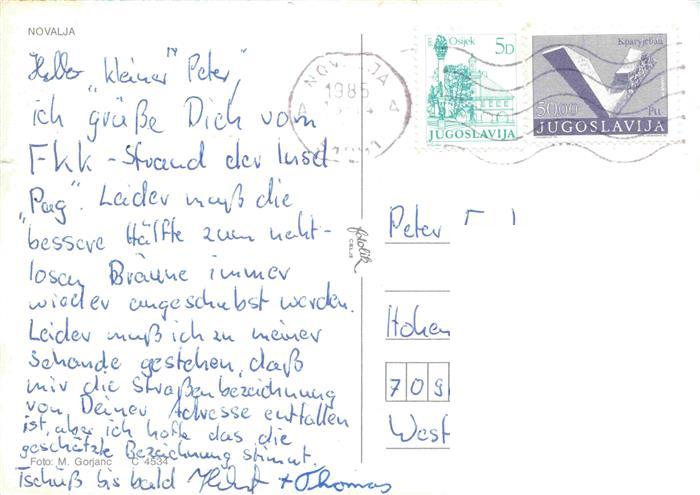 NOVALJA
Hallo "kleiner" Peter,
ich grüße Dich vom
FKK-Strand der Insel
"Pag". Leider muß die
bessere Hälfte zum naht-
losen Bräune immer
wieder angeschubst werden.
Leider muß ich zu meiner
Schande gestehen, daß
mir die Straßenbezeichnung
von Deiner Adresse entfallen
ist, aber ich hoffe das die
geschätzte Bezeichnung stimmt.
Foto: M. Gorjanc C 4534
Tschüß bis bald + Thomas
fotolik
CELJE
1985
Osijek 5D
JUGOSLAVIJA
50.00
JUGOSLAVIJA
Peter
Hohen
709
West